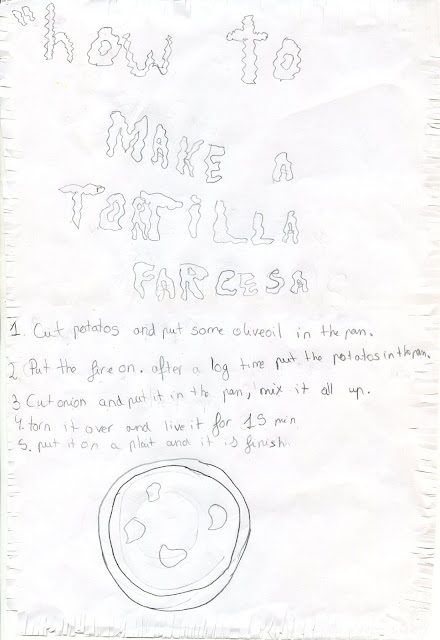 "how to
MAKE A
TORTILLA
FARCESA
1. Cut potatos and put some oliveoil in the pan.
2 Put the fire on. after a log time put the potatos in the pan.
3 Cut onion and put it in the pan, mix it all up.
4. torn it over and live it for 15 min
5. put it on a plait and it is finish.